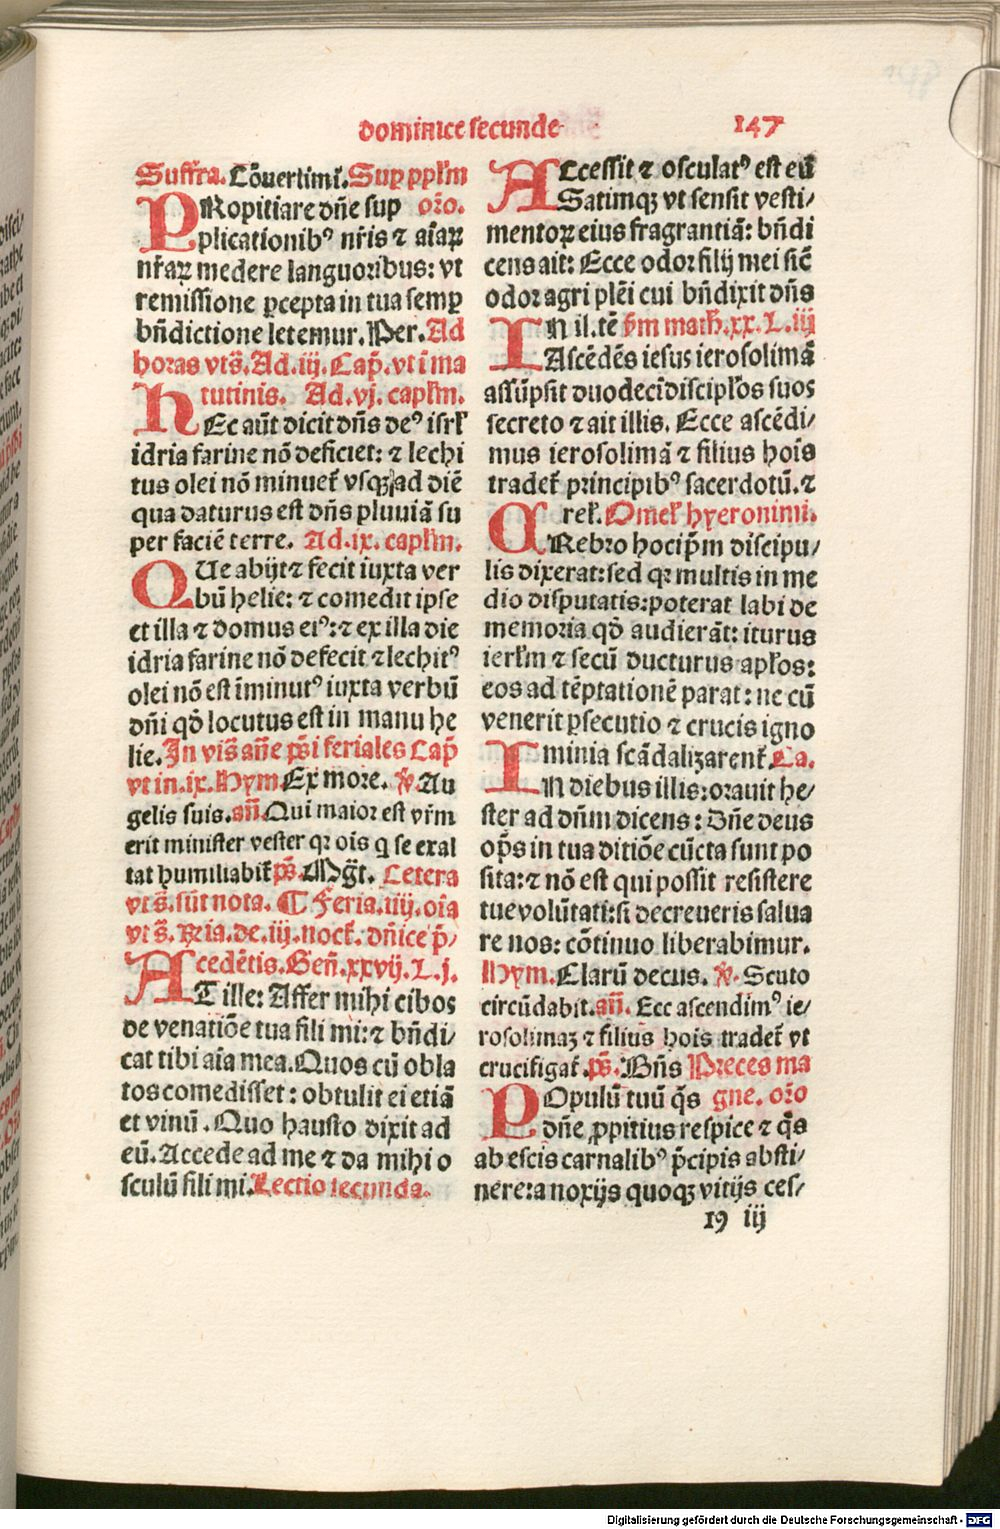 dominice secunde 147
Suffra. Cõuertimĩ. Sup pplm̃
PRopitiare dñe sup oro.
plicationibꝰ nr̃is ⁊ aĩaꝝ
nr̃aꝝ medere languoribus: vt
remissione ꝑcepta in tua semꝑ
bñdictione letemur. Per. Ad
horas vts̃. Ad .iij. Cap̃. vt ĩ ma
tutinis. Ad .vj. caplm̃.
HEc aũt dicit dñs deꝰ isrł
idria farine nõ deficiet: ⁊ lechi
tus olei nõ minuet᷑ vsqꝫ ad diẽ
qua daturus est dñs pluuiã su
per faciẽ terre. Ad .ix. caplm̃.
QUe abijt ⁊ fecit iuxta ver
bũ helie: ⁊ comedit ipse
et illa ⁊ domus eiꝰ: ⁊ ex illa die
idria farine nõ defecit ⁊ lechitꝰ
olei nõ est ĩminutꝰ iuxta verbũ
dñi qd̃ locutus est in manu he
lie. In vis̃ añe ps̃i feriales Cap̃
vt in .ix. Hym Ex more. ℣. An
gelis suis. añ. Qui maior est vr̃m
erit minister vester qꝛ oĩs q se exal
tat humiliabit᷑ ps̃. Mg̃t. Cetera
vts̃. sũt nota. ¶ Feria .iiij. oĩa
vts̃. Ria. de .iij. noct᷑. dñice p̃/
Acedẽtis. Geñ. xxvij. L. j.
AT ille: Affer mihi cibos
de venatiõe tua fili mi: ⁊ bñdi/
cat tibi aĩa mea. Quos cũ obla
tos comedisset: obtulit ei etiã
et vinũ. Quo hausto dixit ad
eũ. Accede ad me ⁊ da mihi o
sculũ fili mi. Lectio secunda.
ACcessit ⁊ osculatꝰ est eũ
Satimqꝫ vt sensit vesti/
mentoꝝ eius fragrantiã: bñdi
cens ait: Ecce odor filij mei sic̃
odor agri plẽi cui bñdixit dñs
IN il. tẽ s̃m math̃. xx. L. iij
Ascẽdẽs iesus ierosolimã
assũpsit duodecĩ discipłos suos
secreto ⁊ ait illis. Ecce ascẽdi/
mus ierosolimã ⁊ filius hoĩs
tradet᷑ principibꝰ sacerdotũ. ⁊
rel᷑. Omel᷑ hyeronimi.
CRebro hoc ip̃m discipu/
lis dixerat: sed qꝛ multis in me
dio disputatis: poterat labi de
memoria qd̃ audierãt: iturus
ierłm ⁊ secũ ducturus apłos:
eos ad tẽptationẽ parat: ne cũ
venerit ꝑsecutio ⁊ crucis igno
minia scãdalizarent᷑. Ca.
IN diebus illis: orauit he/
ster ad dñm dicens: Dñe deus
op̃s in tua ditiõe cũcta sunt po
sita: ⁊ nõ est qui possit resistere
tue volũtati: si decreueris salua
re nos: cõtinuo liberabimur.
Hym. Clarũ decus. ℣. Scuto
circũdabit. añ. Ecc ascendimꝰ ie/
rosolimaꝫ ⁊ filius hois tradet᷑ vt
crucifigat᷑. ps̃. Bñs Preces ma
POpulũ tuũ q̃s gne. oro
dñe ꝓpitius respice ⁊ q̃s
ab escis carnalibꝰ p̃cipis absti/
nere: a noxijs quoqꝫ vitijs ces/
19 iij
Digitalisierung gefördert durch die Deutsche Forschungsgemeinschaft - DFG